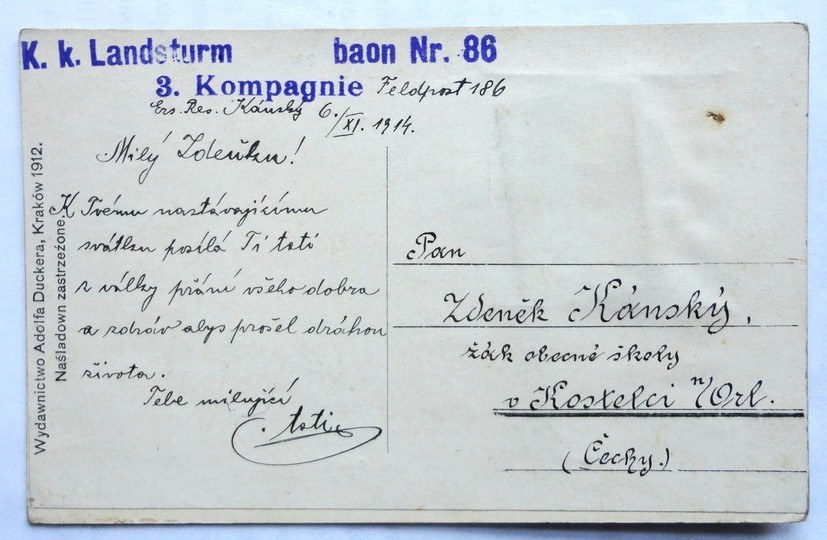 K. k. Landsturm baon Nr. 86
3. Kompagnie Feldpost 186
Ers. Res. Kánský 6./XI. 1914.
Milý Zdeňku!
K Tvému nastávajícímu
svátku posílá Ti tatí
z války přání všeho dobra
a zdráv abys prošel dráhou
života.
Tebe milující
tatí
Pan
Zdeněk Kánský,
žák obecné školy
v Kostelci n/Orl.
(Čechy.)
Wydawnictwo Adolfa Duckera, Kraków 1912.
Naśladown zastrzeżone.